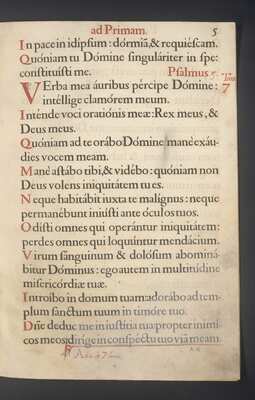 ad Primam. 5
In pace in idipsum: dórmiã, & requiéscam.
Quóniam tu Dómine singuláriter in spe:
constituísti me. Psalmus
7
VErba mea áuribus pércipe Dómine:
intéllige clamórem meum.
Inténde voci oratiónis meæ: Rex meus, &
Deus meus.
Quóniam ad te orábo Dómine mane exáu-
dies vocem meam.
Mane astábo tibi, & vidébo: quóniam non
Deus volens iniquitátem tu es.
Neque habitábit iuxta te malígnus: neque
permanébunt iniústi ante óculos tuos.
Odísti omnes qui operántur iniquitátem:
perdes omnes qui loquúntur mendácium.
Virum sánguinum & dolósum abominá-
bitur Dóminus: ego autem in multitúdine
misericórdiæ tuæ.
Introíbo in domum tuam: adorábo ad tem-
plum sanctum tuum in timóre tuo.
Dñe deduc me in iustítia tua: propter inimí
cos meos dirige in conspéctu tuo viã meam.